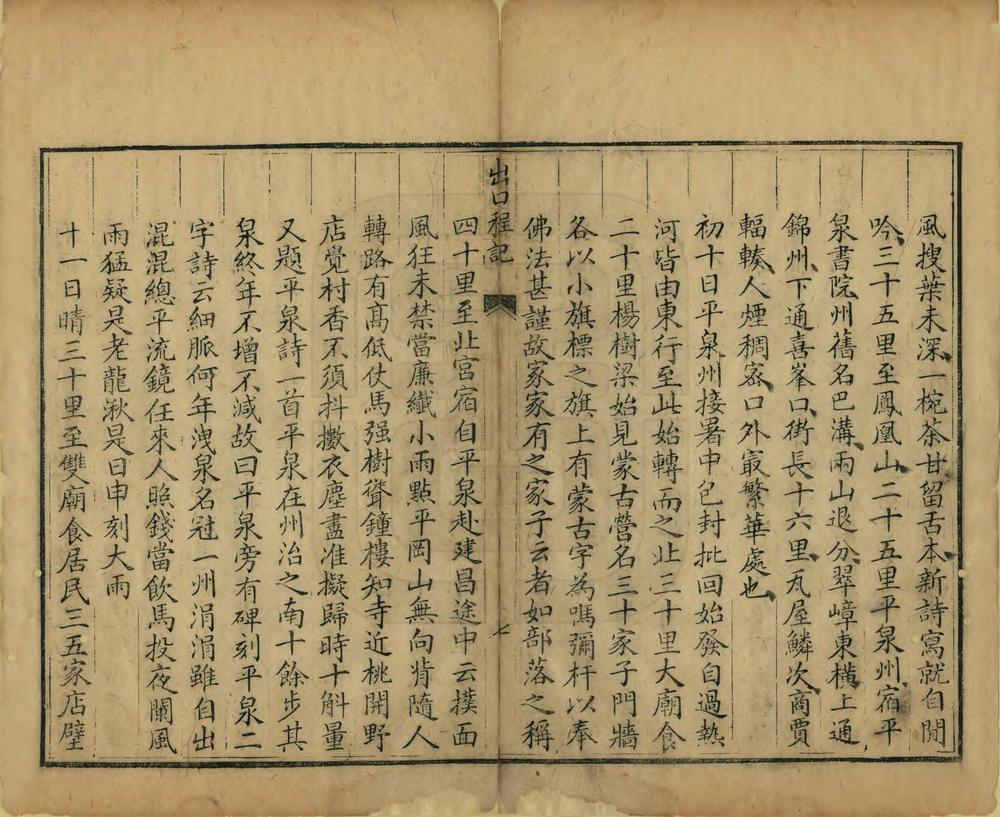 風搜葉未深一椀茶甘留舌本新詩寫就自閒
吟三十五里至鳳凰山二十五里平泉州宿平
泉書院州舊名巴溝兩山退分翠嶂東橫上通
錦州下通喜峯口街長十六里瓦屋鱗次商賈
輻輳人煙稠密口外最繁華處也
初十日平泉州接署中包封批回始發自過熱
河皆由東行至此始轉而之北三十里大廟食
二十里楊樹梁始見蒙古營名三十家子門牆
各以小旗標之旗上有蒙古字為嗎彌杆以奉
佛法甚謹故家家有之家子云者如部落之稱
出口程記
七
四十里至北宮宿自平泉赴建昌途中云撲面
風狂未禁當廉纖小雨點平岡山無向背隨人
轉路有高低仗馬强樹聳鐘樓知寺近桃開野
店覺村香不須抖擻衣塵盡准擬歸時十斛量
又題平泉詩一首平泉在州治之南十餘步其
泉終年不增不減故曰平泉旁有碑刻平泉二
字詩云細脈何年洩泉名冠一州涓涓雖自出
混混總平流鏡任來人照錢當飲馬投夜闌風
雨猛疑是老龍湫是日申刻大雨
十一日晴三十里至雙廟食居民三五家店壁